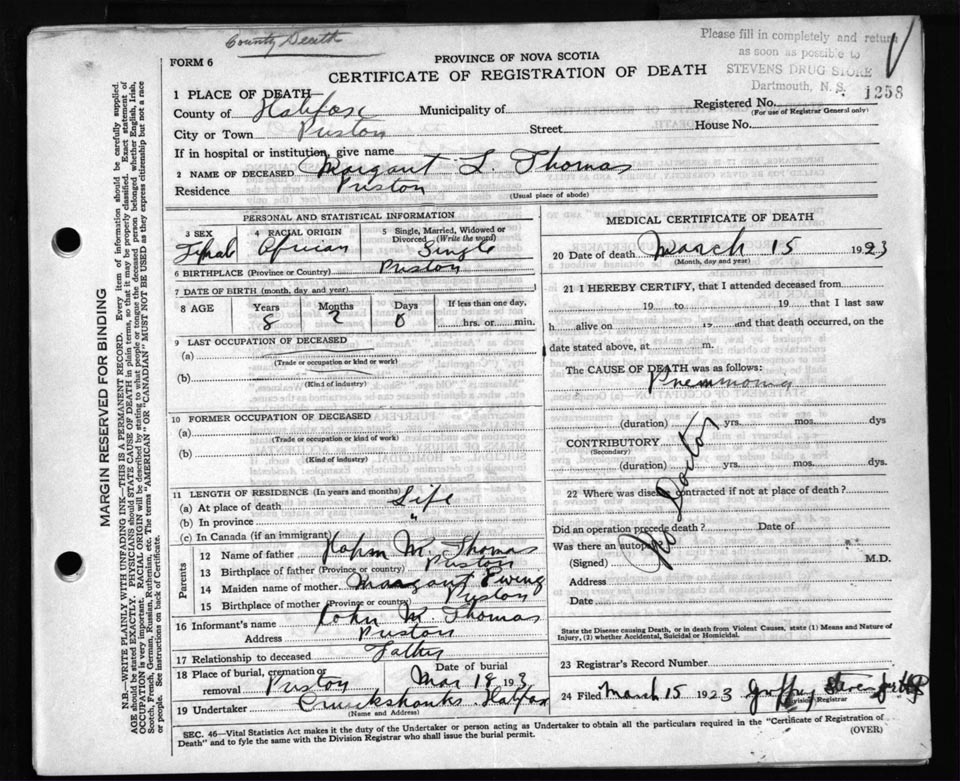 County Death
Please fill in completely and return
as soon as possible to
STEVENS DRUG STORE
Dartmouth, N. S.
1258
FORM 6
PROVINCE OF NOVA SCOTIA
CERTIFICATE OF REGISTRATION OF DEATH
1 PLACE OF DEATH
County of Halifax Municipality of
Registered No.
(For use of Registrar General only)
City or Town Preston Street House No.
If in hospital or institution, give name
2 NAME OF DECEASED Margaret L. Thomas
Residence Preston
(Usual place of abode)
PERSONAL AND STATISTICAL INFORMATION
3 SEX 4 RACIAL ORIGIN 5 Single, Married, Widowed or Divorced (Write the word)
Female African Single
6 BIRTHPLACE (Province or Country) Preston
7 DATE OF BIRTH (month, day and year)
8 AGE Years Months Days If less than one day,
8 2 0 hrs. or min.
9 LAST OCCUPATION OF DECEASED
(a)
(Trade or occupation or kind or work)
(b)
(Kind of industry)
10 FORMER OCCUPATION OF DECEASED
(a)
(Trade or occupation or kind of work)
(b)
(Kind of industry)
11 LENGTH OF RESIDENCE (In years and months)
(a) At place of death Life
(b) In province "
(c) In Canada (if an immigrant)
Parents
12 Name of father M. Thomas
13 Birthplace of father (Province or country) Preston
14 Maiden name of mother Margaret Ewing
15 Birthplace of mother (Province or country) Preston
16 Informant's name John M. Thomas
Address Preston
17 Relationship to deceased Father
18 Place of burial, cremation or removal Preston Date of burial Mar 18 1923
19 Undertaker Cruickshanks Halifax
(Name and Address)
MEDICAL CERTIFICATE OF DEATH
20 Date of death March 15 1923
(Month, day and year)
21 I HEREBY CERTIFY, that I attended deceased from
19 to 19 that I last saw
h alive on 19 and that death occurred, on the
date stated above, at m.
The CAUSE OF DEATH was as follows:
Pneumonia
(duration) yrs. mos. dys
CONTRIBUTORY
(Secondary)
(duration) yrs. mos. dys.
22 Where was disease contracted if not at place of death?
Did an operation precede death? Date of
Was there an autopsy
No Doctor
(Signed) M.D.
Address
Date
State the Disease causing Death, or in death from Violent Causes, state (1) Means and Nature of
Injury, (2) whether Accidental, Suicidal or Homicidal.
23 Registrar's Record Number
24 Filed March 15 1923
Division Registrar
SEC. 46—Vital Statistics Act makes it the duty of the Undertaker or person acting as Undertaker to obtain all the particulars required in the "Certificate of Registration of
Death" and to fyle the same with the Division Registrar who shall issue the burial permit.
(OVER)
MARGIN RESERVED FOR BINDING
N.B.—WRITE PLAINLY WITH UNFADING INK—THIS IS A PERMANENT RECORD. Every item of information should be carefully supplied.
AGE should be stated EXACTLY. PHYSICIANS should STATE CAUSE OF DEATH in plain terms, so that it may be properly classified. Exact statement of
OCCUPATION is very important. RACIAL ORIGIN will be described by stating to what people or tongue the deceased person belonged whether English, Irish,
Scotch, French, German, Russian, Ruthenian, etc. The terms "AMERICAN" OR "CANADIAN" MUST NOT BE USED as they express citizenship but not a race
or people. See instructions on back of Certificate.